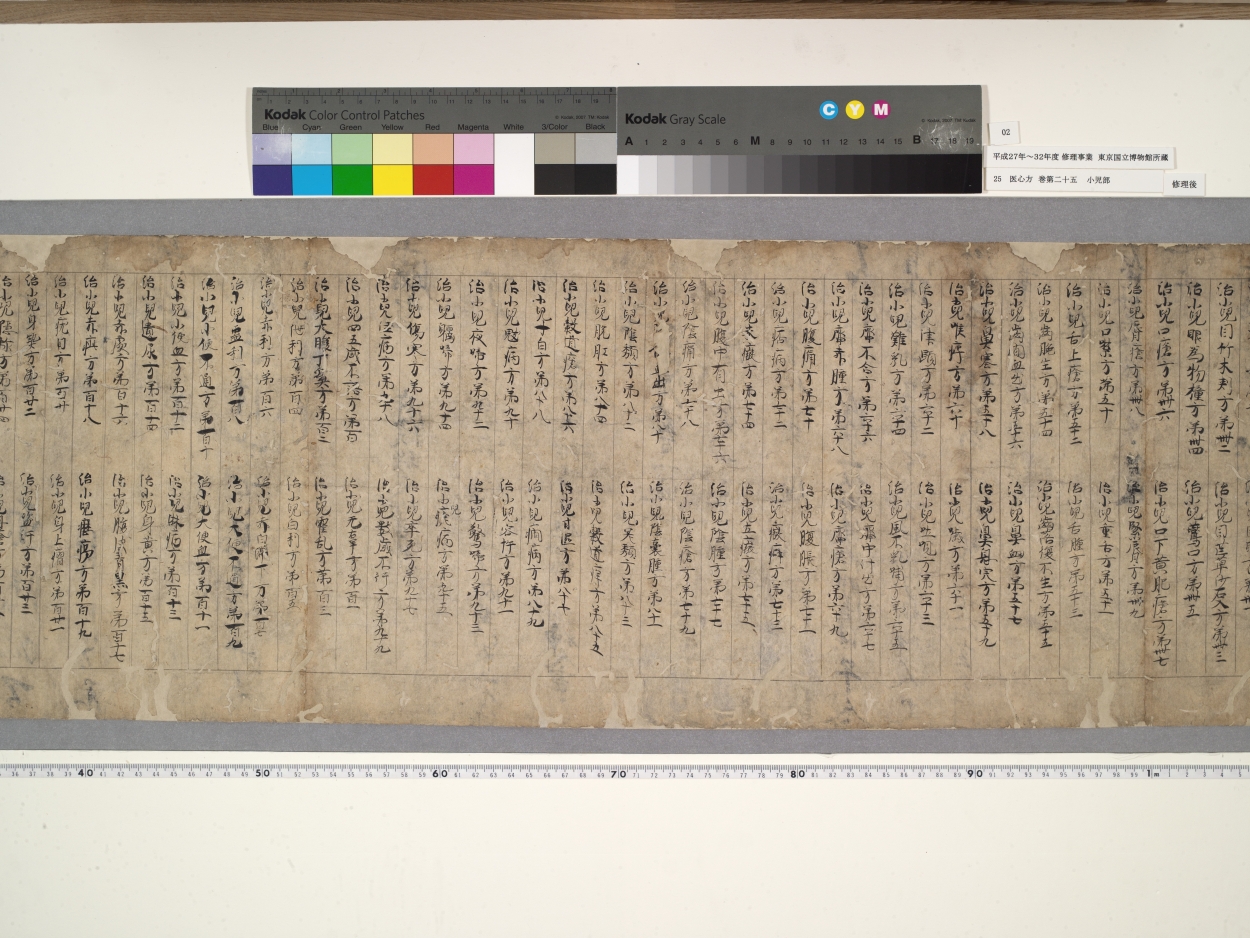 Kodak Color Control Patches
Blue Cyan Green Yellow Red Magenta White 3/Color Black
Kodak Gray Scale
C Y M
A 1 2 3 4 5 6 M 8 9 10 11 12 13 14 15 B 17 18 19
02
平成27年～32年度 修理事業 東京国立博物館所蔵
25 医心方 巻第二十五 小児部
修理後
治小兒目竹木刺方第卌二 治小兒目眯沙石入方第卌三
治小兒耳為物方第卌四 治小兒鵞口方第卌五
治小兒口瘡方第卌六 治小兒口下黄肥瘡方第卌七
治小兒脣瘡方第卌八 治小兒緊脣方第卌九
治小兒口噤方第五十 治小兒重舌方第五十一
治小兒舌上瘡方第五十二 治小兒舌腫方第五十三
治小兒齒晩生方第五十四 治小兒齒落復不生方第五十五
治小兒齒間血出方第五十六 治小兒鼻衂方第五十七
治小兒鼻塞方第五十八 治小兒鼻息肉方第五十九
治小兒喉痺方第六十 治小兒噦方第六十一
治小兒津頤方第六十二 治小兒吐哯方第六十三
治小兒難乳方第六十四 治小兒風不乳哺方第六十五
治小兒臍不合方第六十六 治小兒臍中汁出方第六十七
治小兒臍赤腫方第六十八 治小兒臍瘡方第六十九
治小兒腹痛方第七十 治小兒腹脹方第七十一
治小兒痞病方第七十二 治小兒癥癖方第七十三
治小兒方第七十四 治小兒土瘕方第七十五
治小兒腹中有虫方第七十六 治小兒陰腫方第七十七
治小兒陰痛方第七十八 治小兒陰瘡方第七十九
治小兒不出方第八十 治小兒陰囊腫方第八十一
治小兒陰頽方第八十二 治小兒差頽方第八十三
治小兒脱肛方第八十四 治小兒穀道痒方第八十五
治小兒穀道瘡方第八十六 治小兒方第八十七
治小兒寸白方第八十八 治小兒癇病方第八十九
治小兒魃病方第九十 治小兒客忤方第九十一
治小兒夜啼方第九十二 治小兒驚啼方第九十三
治小兒軀啼方第九十四 治小兒瘧病方第九十五
治小兒傷寒方第九十六 治小兒卒死方第九十七
治小兒注病方第九十八 治小兒數歲不行方第九十九
治小兒四五歲不語方第百 治小兒无辜方第百一
治小兒大腹丁奚方第百二 治小兒霍亂方第百三
治小兒泄利方第百四 治小兒白利方第百五
治小兒赤利方第百六 治小兒赤白滯下方第百七
治小兒蠱利方第百八 治小兒大便不通方第百九
治小兒小便不通方第百十 治小兒大便血方第百十一
治小兒小便血方第百十二 治小兒淋病方第百十三
治小兒遺尿方第百十四 治小兒身黄方第百十五
治小兒赤疵方第百十六 治小兒腹皆青黒方第百十七
治小兒方第百十八 治小兒方第百十九
治小兒疣目方第百廿 治小兒身上癅方第百廿一
治小兒身熱方第百廿二 治小兒盗汗方第百廿三
治小兒隱軫方第百廿四